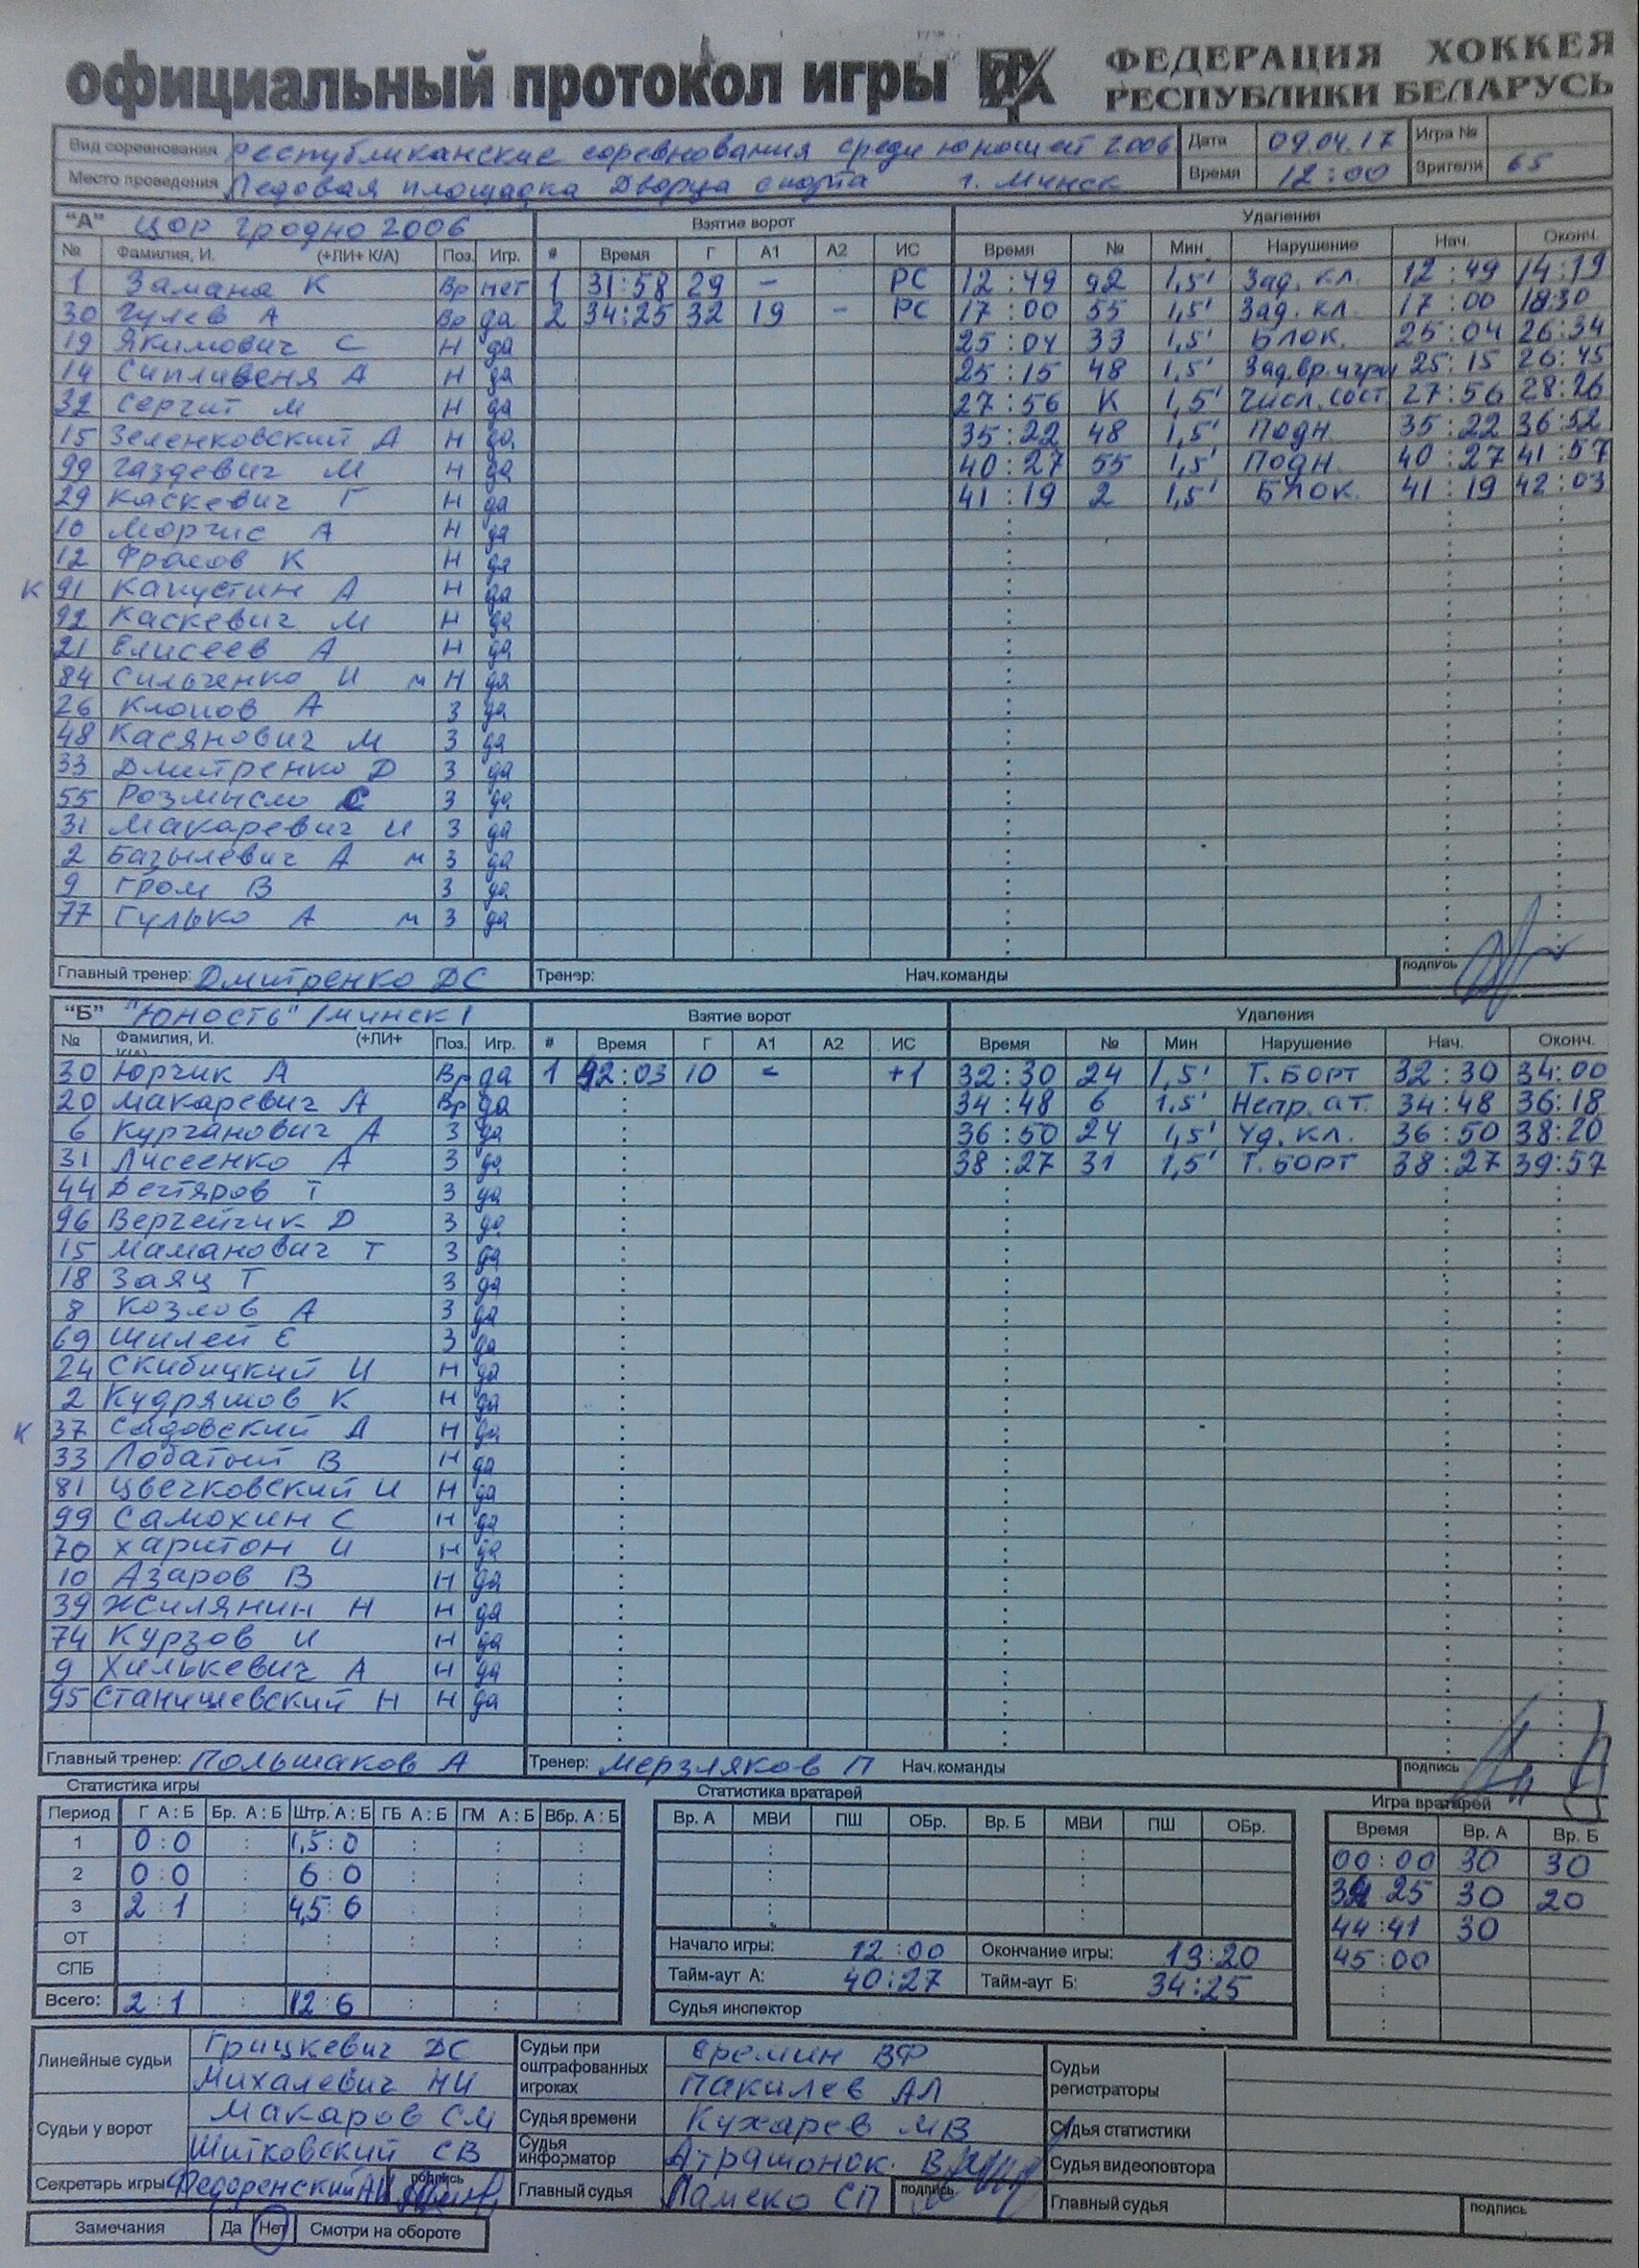 официальный протокол игры ФЕДЕРАЦИЯ ХОККЕЯ
РЕСПУБЛИКИ БЕЛАРУСЬ
Вид соревнования республиканские соревнования среди юношей 2006 Дата 09.04.17 Игра №
Место проведения Ледовая площадка Дворца спорта г. Минск Время 12:00 Зрители 65
"А" ЦОР Гродно 2006 Взятие ворот Удаления
№ Фамилия, И. (+ЛИ+ К/А) Поз. Игр. # Время Г А1 А2 ИС Время № Мин Нарушение Нач. Оконч.
1 Замана К Вр нет 1 31:58 29 - РС 12:49 92 1,5' Зад. кл. 12:49 14:19
30 Гулев А Вр да 2 34:25 32 19 - РС 17:00 55 1,5' Зад. кл. 17:00 18:30
19 Якимович С Н да 25:04 33 1,5' Блок. 25:04 26:34
14 Сипливеня А Н да 25:15 48 1,5' Зад.вр.игры 25:15 26:45
32 Сергит М Н да 27:56 К 1,5' Числ.сост 27:56 28:26
15 Зеленковский А Н да 35:22 48 1,5' Подн. 35:22 36:52
99 Газдевич М Н да 40:27 55 1,5' Подн. 40:27 41:57
29 Каскевич Г Н да 41:19 2 1,5' Блок. 41:19 42:03
10 Морчис А Н да
12 Фрасов К Н да
К 91 Капустин А Н да
92 Каскевич М Н да
21 Елисеев А Н да
84 Сильченко И м Н да
26 Клопов А З да
48 Касянович М З да
33 Дмитренко Д З да
55 Розмысло С З да
31 Макаревич И З да
2 Базылевич А м З да
9 Гром В З да
77 Гулько А м З да
Главный тренер: Дмитренко ДС Тренер: Нач.команды подпись
"Б" "Юность" /Минск/ Взятие ворот Удаления
№ Фамилия, И. (+ЛИ+ К/А) Поз. Игр. # Время Г А1 А2 ИС Время № Мин Нарушение Нач. Оконч.
30 Юрчик А Вр да 1 42:03 10 - +1 32:30 24 1,5' Т. борт 32:30 34:00
20 Макаревич А Вр да 34:48 6 1,5' Непр. ат. 34:48 36:18
6 Курганович А З да 36:50 24 1,5' Уд. кл. 36:50 38:20
31 Лисеенко А З да 38:27 31 1,5' Т. борт 38:27 39:57
44 Дегтяров Т З да
96 Верчейчик Д З да
15 Маманович Т З да
18 Заяц Т З да
8 Козлов А З да
69 Шилей Е З да
24 Скибицкий И Н да
2 Кудряшов К Н да
К 37 Садовский А Н да
33 Лобатый В Н да
81 Цвечковский И Н да
99 Самохин С Н да
70 Харитон И Н да
10 Азаров В Н да
39 Жилянин Н Н да
74 Курзов И Н да
9 Хилькевич А Н да
95 Станишевский Н Н да
Главный тренер: Польшаков А Тренер: Мерзляков П Нач.команды подпись
Статистика игры Статистика вратарей Игра вратарей
Период Г А:Б Бр. А:Б Штр. А:Б ГБ А:Б ГМ А:Б Вбр. А:Б Вр. А МВИ ПШ ОБр. Вр. Б МВИ ПШ ОБр. Время Вр. А Вр. Б
1 0:0 1,5:0 00:00 30 30
2 0:0 6:0 34:25 30 20
3 2:1 4,5:6 44:41 30
ОТ Начало игры: 12:00 Окончание игры: 13:20 45:00
СПБ Тайм-аут А: 40:27 Тайм-аут Б: 34:25
Всего: 2:1 12:6 Судья инспектор
Линейные судьи Грицкевич ДС Судьи при оштрафованных игроках Еремин ВФ Судьи регистраторы
Михалевич НИ Пакилев АЛ
Судьи у ворот Макаров СМ Судья времени Кухарев МВ Судья статистики
Шитковский СВ Судья информатор Атрашонок В Судья видеоповтора
Секретарь игры Федоренский АИ подпись Главный судья Ламеко СП подпись Главный судья подпись
Замечания Да Нет Смотри на обороте